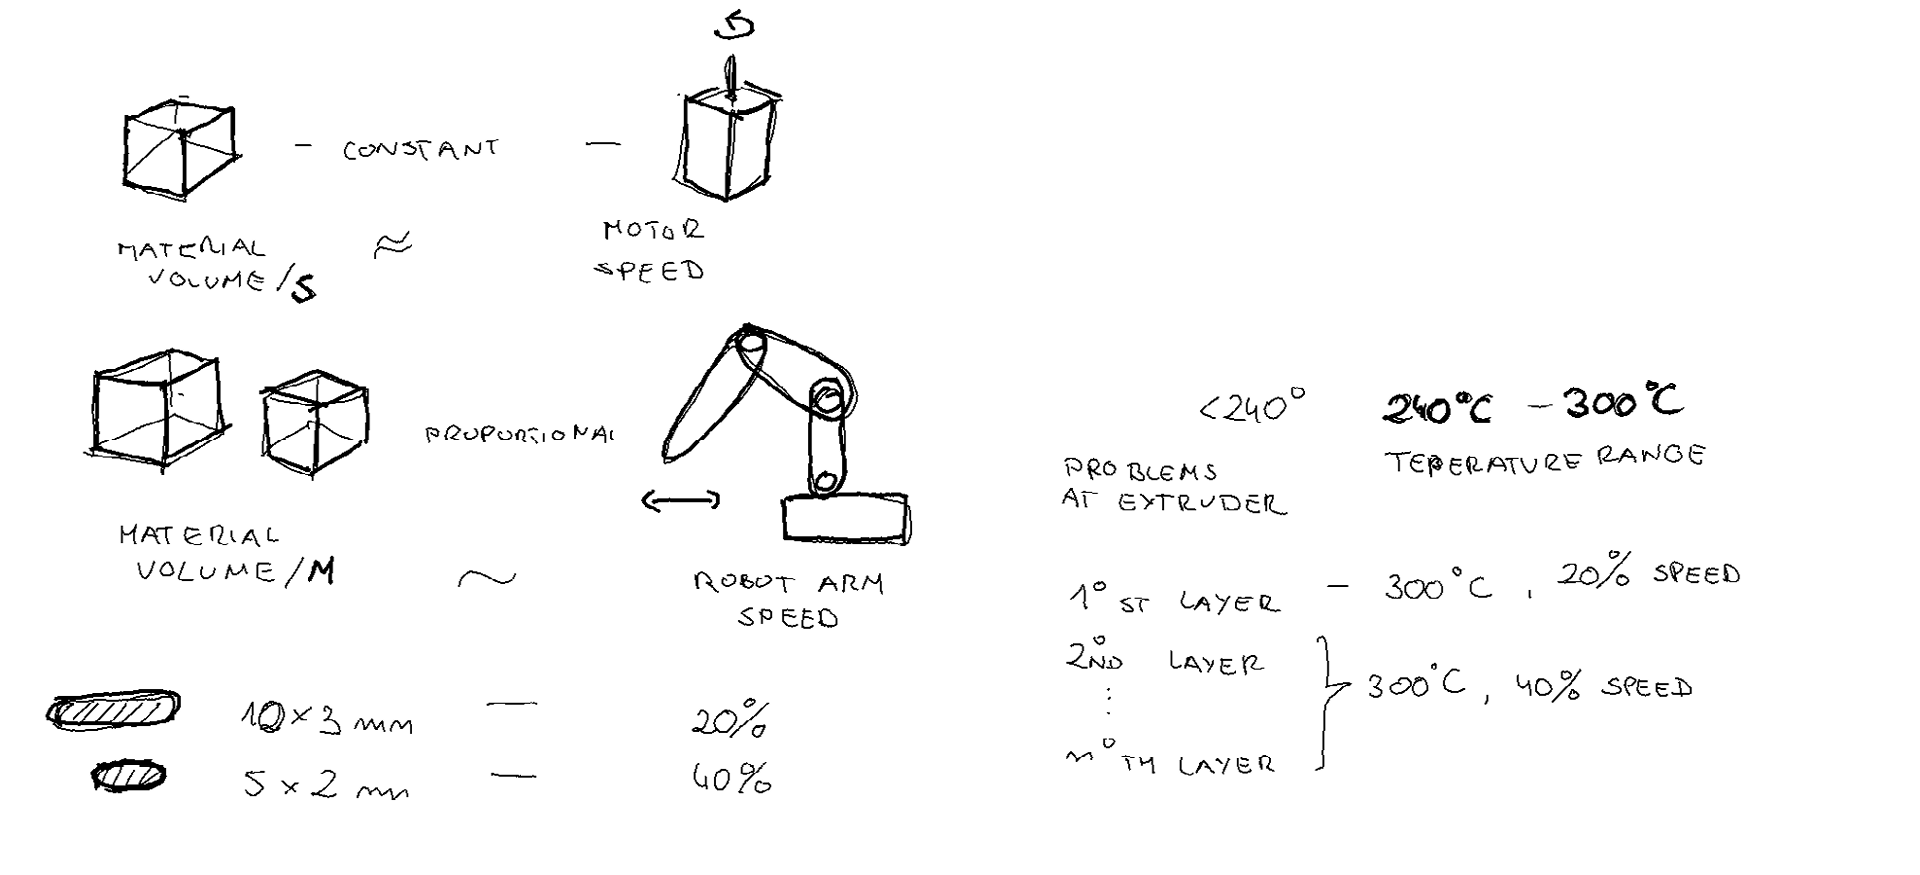 - CONSTANT -
MATERIAL
VOLUME/S
≈
MOTOR
SPEED
PROPORTIONAL
MATERIAL
VOLUME/M
~
ROBOT ARM
SPEED
10×3 mm — 20%
5×2 mm — 40%
<240° 240°C - 300°C
PROBLEMS
AT EXTRUDER
TEPERATURE RANGE
1° ST LAYER - 300°C, 20% SPEED
2° ND LAYER
⋮
n° TH LAYER
} 300°C, 40% SPEED